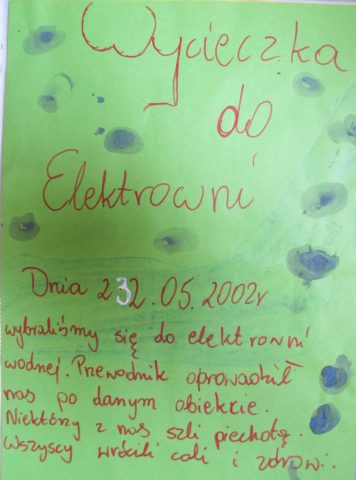 Wycieczka
do
Elektrowni
Dnia 232.05.2002r
wybraliśmy się do elektrowni
wodnej. Przewodnik oprowadził
nas po danym obiekcie.
Niektórzy z nas szli piechotą.
Wszyscy wrócili cali i zdrowi.